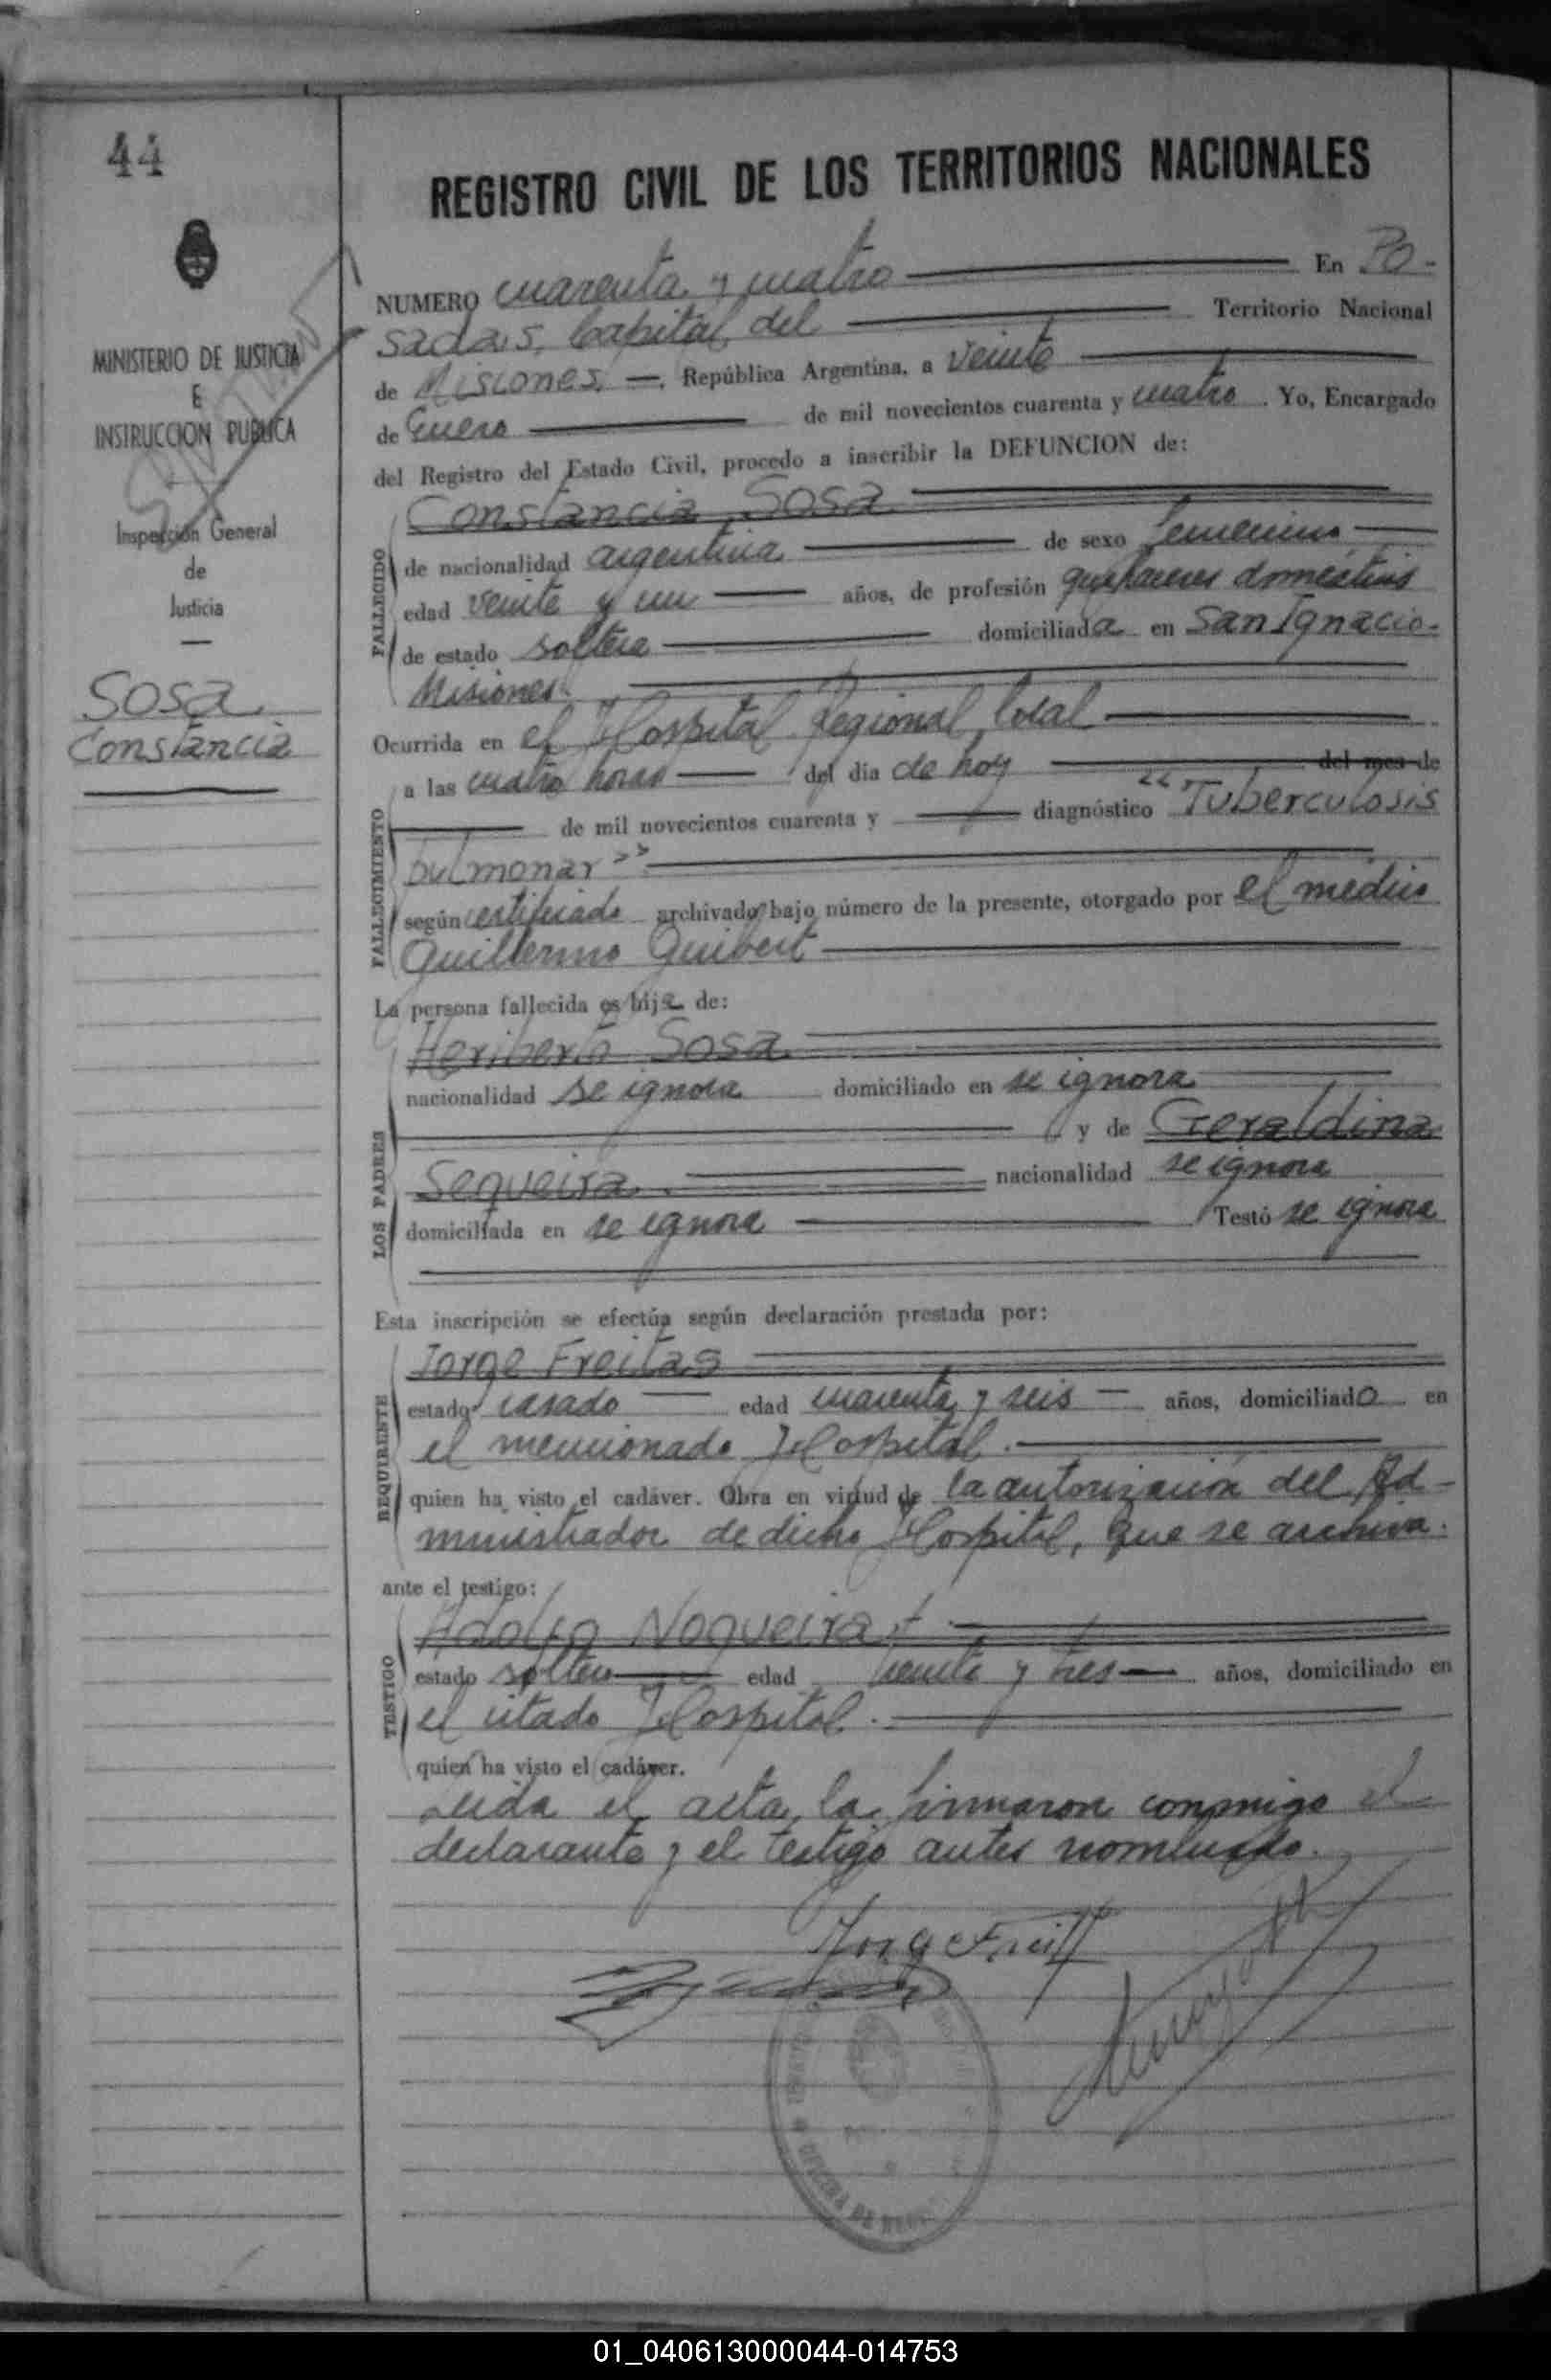 44
REGISTRO CIVIL DE LOS TERRITORIOS NACIONALES
NUMERO cuarenta y cuatro En Po-
sadas, Capital del Territorio Nacional
de Misiones, República Argentina, a veinte
de Enero de mil novecientos cuarenta y cuatro. Yo, Encargado
del Registro del Estado Civil, procedo a inscribir la DEFUNCION de:
MINISTERIO DE JUSTICIA
E
INSTRUCCION PUBLICA
Inspección General
de
Justicia
Sosa
Constancia
FALLECIDO
Constancia Sosa
de nacionalidad argentina de sexo femenino
edad veinte y un años, de profesión quehaceres domésticos
de estado soltera domiciliada en San Ignacio-
Misiones.
FALLECIMIENTO
Ocurrida en el Hospital Regional local
a las cuatro horas del día de hoy del mes de
de mil novecientos cuarenta y diagnóstico "Tuberculosis
pulmonar"
según certificado archivado bajo número de la presente, otorgado por el médico
Guillermo Guibert
La persona fallecida es hija de:
LOS PADRES
Heriberto Sosa
nacionalidad se ignora domiciliado en se ignora
y de Geraldina
Sequeira. nacionalidad se ignora
domiciliada en se ignora Testó se ignora
Esta inscripción se efectúa según declaración prestada por:
REQUIRENTE
Jorge Freitas
estado casado edad cuarenta y seis años, domiciliado en
el mencionado Hospital.
quien ha visto el cadáver. Obra en virtud de la autorización del Ad-
ministrador de dicho Hospital, que se archiva.
ante el testigo:
TESTIGO
Adolfo Nogueira
estado soltero edad veinte y tres años, domiciliado en
el citado Hospital.
quien ha visto el cadáver.
Leida el acta, la firmaron conmigo el
declarante y el testigo antes nombrado.
Jorge Freitas
01_040613000044-014753